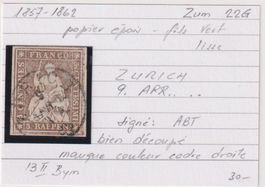 1857-1862 Zum 22G
papier épais - fils vert
lisse
FRANCO
5 RAPPEN
ZURICH
9. APR....
signé: ABT
bien découpé
manque couleur cadre droite
13 II Bym 30-